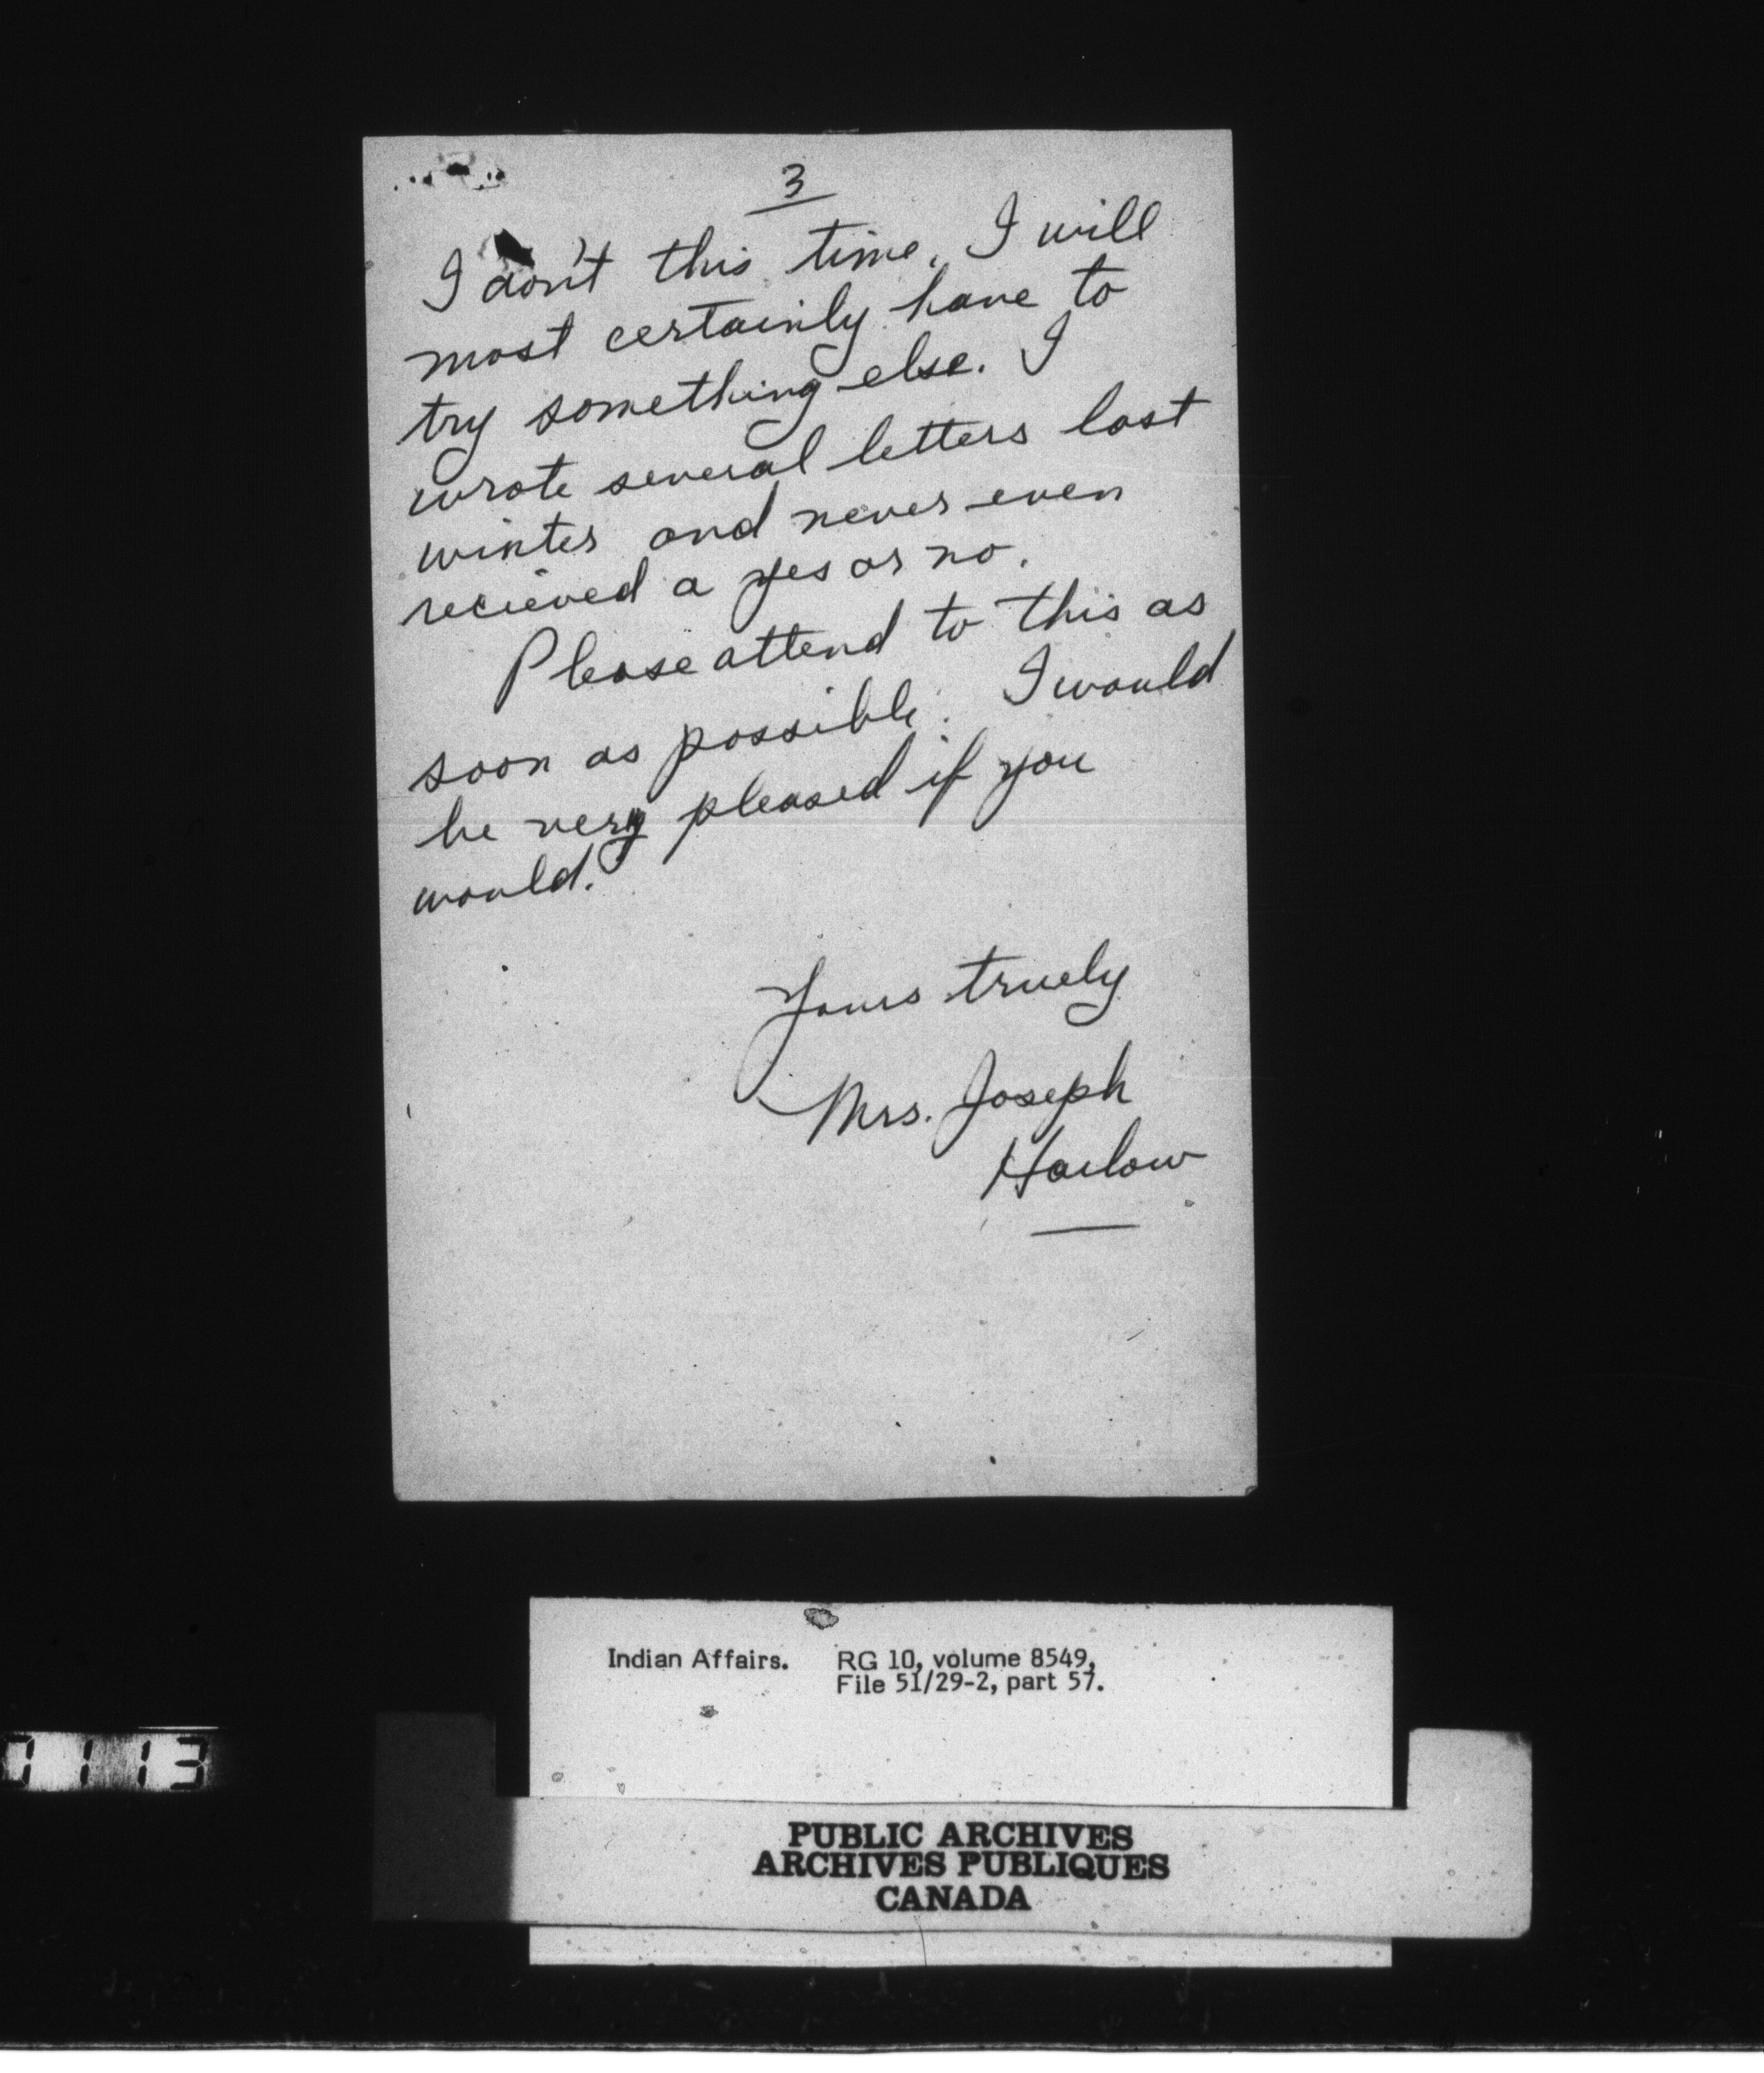 3
I don't this time, I will
most certainly have to
try something else. I
wrote several letters last
winter and never even
recieved a yes or no.
Please attend to this as
soon as possible. I would
be very pleased if you
would.
Yours truely
Mrs. Joseph
Harlow
Indian Affairs. RG 10, volume 8549,
File 51/29-2, part 57.
1113
PUBLIC ARCHIVES
ARCHIVES PUBLIQUES
CANADA